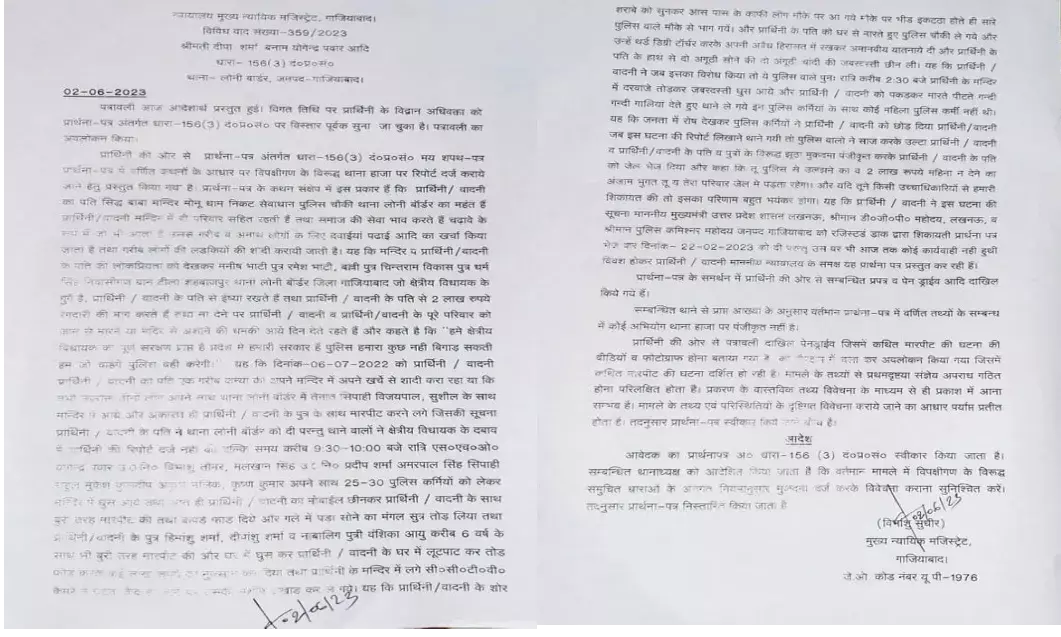 न्यायालय मुख्य न्यायिक मजिस्ट्रेट, गाजियाबाद।
विविध वाद संख्या-359/2023
श्रीमती दीपा शर्मा बनाम योगेन्द्र पवार आदि
धारा- 156(3) दं०प्र०सं०
थाना- लोनी बार्डर, जनपद-गाजियाबाद।
02-06-2023
पत्रावली आज आदेशार्थ प्रस्तुत हुई। विगत तिथि पर प्रार्थिनी के विद्वान अधिवक्ता को
प्रार्थना-पत्र अंतर्गत धारा-156(3) दं०प्र०सं० पर विस्तार पूर्वक सुना जा चुका है। पत्रावली का
अवलोकन किया।
प्रार्थिनी की ओर से प्रार्थना-पत्र अंतर्गत धारा-156(3) दं०प्र०सं० मय शपथ-पत्र
प्रार्थना-पत्र में वर्णित कथनों के आधार पर विपक्षीगण के विरूद्ध थाना हाजा पर रिपोर्ट दर्ज कराये
जाने हेतु प्रस्तुत किया गया है। प्रार्थना-पत्र के कथन संक्षेप में इस प्रकार हैं कि प्रार्थिनी/वादनी
का पति सिद्ध बाबा मन्दिर मोनू धाम निकट सेवाधान पुलिस चौकी लोनी बॉर्डर का महंत हैं
प्रार्थिनी/वादनी मन्दिर में ही परिवार सहित रहती हैं तथा समाज की सेवा भाव करते हैं चढ़ावे के
रूप में जो भी आता है उससे गरीब व अनाथ लोगों के लिए दवाईयां पढाई आदि का खर्चा किया
जाता है तथा गरीब लोगों की लडकियों की शादी करायी जाती है। यह कि मन्दिर व प्रार्थिनी/वादनी
के पति की लोकप्रियता को देखकर मनीष भाटी पुत्र रमेश भाटी, बल्ली पुत्र चिन्तराम विकास पुत्र धर्म
सिंह निवासीगण ग्राम टीला शहबाजपुर थाना लोनी बॉर्डर जिला गाजियाबाद जो क्षेत्रीय विधायक के
गुर्गे है, प्रार्थिनी / वादनी के पति से ईर्ष्या रखते हैं तथा प्रार्थिनी / वादनी के पति से 2 लाख रुपये
रंगदारी की मांग करते हैं तथा ना देने पर प्रार्थिनी / वादनी व प्रार्थिनी/वादनी के पूरे परिवार को
जान से मारने या मंदिर से भगाने की धमकी आये दिन देते रहते हैं और कहते है कि "हमे क्षेत्रीय
विधायक का पूर्ण संरक्षण प्राप्त है प्रदेश में हमारी सरकार हैं पुलिस हमारा कुछ नही बिगाड़ सकती
हम जो चाहेंगे पुलिस वही करेगी।" यह कि दिनांक-06-07-2022 को प्रार्थिनी / वादनी
प्रार्थिनी / वादनी का पति एक गरीब कन्या की अपने मन्दिर में अपने खर्चे से शादी करा रहा था कि
तभी उपरोक्त तीनो लोग अपने साथ थाना लोनी बॉर्डर में तैनात सिपाही विजयपाल, सुशील के साथ
मन्दिर में आये और अकारण ही प्रार्थिनी / वादनी के पुत्र के साथ मारपीट करने लगे जिसकी सूचना
प्रार्थिनी / वादनी के पति ने थाना लोनी बॉर्डर को दी परन्तु थाने वालों ने क्षेत्रीय विधायक के दबाव
में प्रार्थिनी की रिपोर्ट दर्ज नही की बल्कि समय करीब 9:30-10:00 बजे रात्रि एस०एच०ओ०
योगेन्द्र पवार उ०नि० हिमांशु तोमर, मलखान सिंह उ०नि० प्रदीप शर्मा अमरपाल सिंह सिपाही
राहुल मुकेश मलिक, कृष्ण कुमार अपने साथ 25-30 पुलिस कर्मियों को लेकर
मन्दिर में घुस आये तथा आते ही प्रार्थिनी / वादनी का मोबाईल छीनकर प्रार्थिनी / वादनी के साथ
बुरी तरह मारपीट की तथा कपडे फाड दिये और गले में पडा सोने का मंगल सुत्र तोड़ लिया तथा
प्रार्थिनी/वादनी के पुत्र हिमांशु शर्मा, दीजंशु शर्मा व नाबालिग पुत्री वंशिका आयु करीब 6 वर्ष के
साथ भी बुरी तरह मारपीट की और घर में घुस कर प्रार्थिनी / वादनी के घर में लूटपाट कर तोड़
फोड़ करके कई लाख रूपये का नुकसान कर दिया तथा प्रार्थिनी के मन्दिर में लगे सी०सी०टी०वी०
कैमरे उखाड कर ले गये। यह कि प्रार्थिनी/वादनी के शोर
02/06/23
शराबे को सुनकर आस पास के काफी लोग मौके पर आ गये मौके पर भीड इकटठा होते ही सारे
पुलिस वाले मौके से भाग गये। और प्रार्थिनी के पति को घर से मारते हुए पुलिस चौकी ले गये और
उन्हें थर्ड डिग्री टॉर्चर करके अपनी अवैध हिरासत में रखकर अमानवीय यातनाये दी और प्रार्थिनी के
पति के हाथ से दो अगूठी सोने की दो अगूंठी चांदी की जबरदस्ती छीन ली। यह कि प्रार्थिनी /
वादनी ने जब इसका विरोध किया तो ये पुलिस वाले पुनः रात्रि करीब 2:30 बजे प्रार्थिनी के मन्दिर
में दरवाजे तोडकर जबरदस्ती घुस आये और प्रार्थिनी / वादनी को पकडकर मारते पीटते गन्दी
गन्दी गालियां देते हुए थाने ले गये इन पुलिस कर्मियों के साथ कोई महिला पुलिस कर्मी नहीं थी।
यह कि जनता में रोष देखकर पुलिस कर्मियों ने प्रार्थिनी / वादनी को छोड दिया प्रार्थिनी/वादनी
जब इस घटना की रिपोर्ट लिखाने थाने गयी तो पुलिस वालो ने साज करके उल्टा प्रार्थिनी / वादनी
व प्रार्थिनी/वादनी के पति व पुत्रों के विरूद्ध झूठा मुकदमा पंजीकृत करके प्रार्थिनी / वादनी के पति
को जेल भेज दिया और कहा कि तू पुलिस से उलझने का व 2 लाख रूपये महिना न देने का
अंजाम भुगत तू व तेरा परिवार जेल मे पडता रहेगा। और यदि तूने किसी उच्चाधिकारियों से हमारी
शिकायत की तो इसका परिणाम बहुत भयंकर होगा। यह कि प्रार्थिनी / वादनी ने इस घटना की
सूचना माननीय मुख्यमंत्री उत्तर प्रदेश शासन लखनऊ, श्रीमान डी०जी०पी० महोदय, लखनऊ, व
श्रीमान पुलिस कमिश्नर महोदय जनपद गाजियाबाद को रजिस्टर्ड डाक द्वारा शिकायती प्रार्थना पत्र
भेज कर दिनांक- 22-02-2023 को दी परन्तु उस पर भी आज तक कोई कार्यवाही नही हुयी
विवश होकर प्रार्थिनी / वादनी माननीय न्यायालय के समक्ष यह प्रार्थना पत्र प्रस्तुत कर रही हैं।
प्रार्थना-पत्र के समर्थन में प्रार्थिनी की ओर से सम्बन्धित प्रपत्र व पेन ड्राईव आदि दाखिल
किये गये हैं।
सम्बन्धित थाने से प्राप्त आख्या के अनुसार वर्तमान प्रार्थना-पत्र में वर्णित तथ्यों के सम्बन्ध
में कोई अभियोग थाना हाजा पर पंजीकृत नहीं है।
प्रार्थिनी की ओर से पत्रावली दाखिल पेनड्राईव जिसमे कथित मारपीट की घटना की
वीडियों व फोटोग्राफ होना बताया गया है, का कर अवलोकन किया गया जिसमें
कथित मारपीट की घटना दर्शित हो रही है। मामले के तथ्यों से प्रथमदृष्टया संज्ञेय अपराध गठित
होना परिलक्षित होता है। प्रकरण के वास्तविक तथ्य विवेचना के माध्यम से ही प्रकाश में आना
सम्भव है। मामले के तथ्य एवं परिस्थितियों के दृष्टिगत विवेचना कराये जाने का आधार पर्याप्त प्रतीत
होता है। तदनुसार प्रार्थना-पत्र स्वीकार किये जाने योग्य है।
आदेश
आवेदक का प्रार्थनापत्र अ० धारा-156 (3) दं०प्र०सं० स्वीकार किया जाता है।
सम्बन्धित थानाध्यक्ष को आदेशित किया जाता है कि वर्तमान मामले में विपक्षीगण के विरूद्ध
समुचित धाराओं के अन्तर्गत नियमानुसार मुकदमा दर्ज करके विवेचना कराना सुनिश्चित करें।
तदनुसार प्रार्थना-पत्र निस्तारित किया जाता है
02/06/23
(विमांशु सुधीर)
मुख्य न्यायिक मजिस्ट्रेट,
गाजियाबाद।
जे.ओ. कोड नंबर यू पी-1976